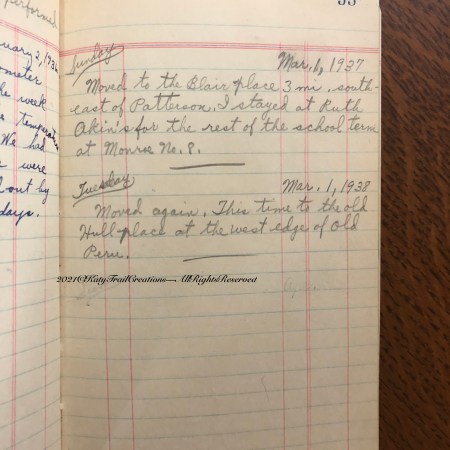 performed
uary 2, 1936
ometer
he week
e tempera
We had
were
out by
days.
33
Sunday
Mar. 1, 1937
Moved to the Blair place 3 mi. south-
east of Patterson. I stayed at Ruth
Akin's for the rest of the school term
at Monroe No. 8.
Tuesday
Mar. 1, 1938
Moved again. This time to the old
Hull place at the west edge of Old
Peru.
2021©KatyTrailCreations—AllRightsReserved